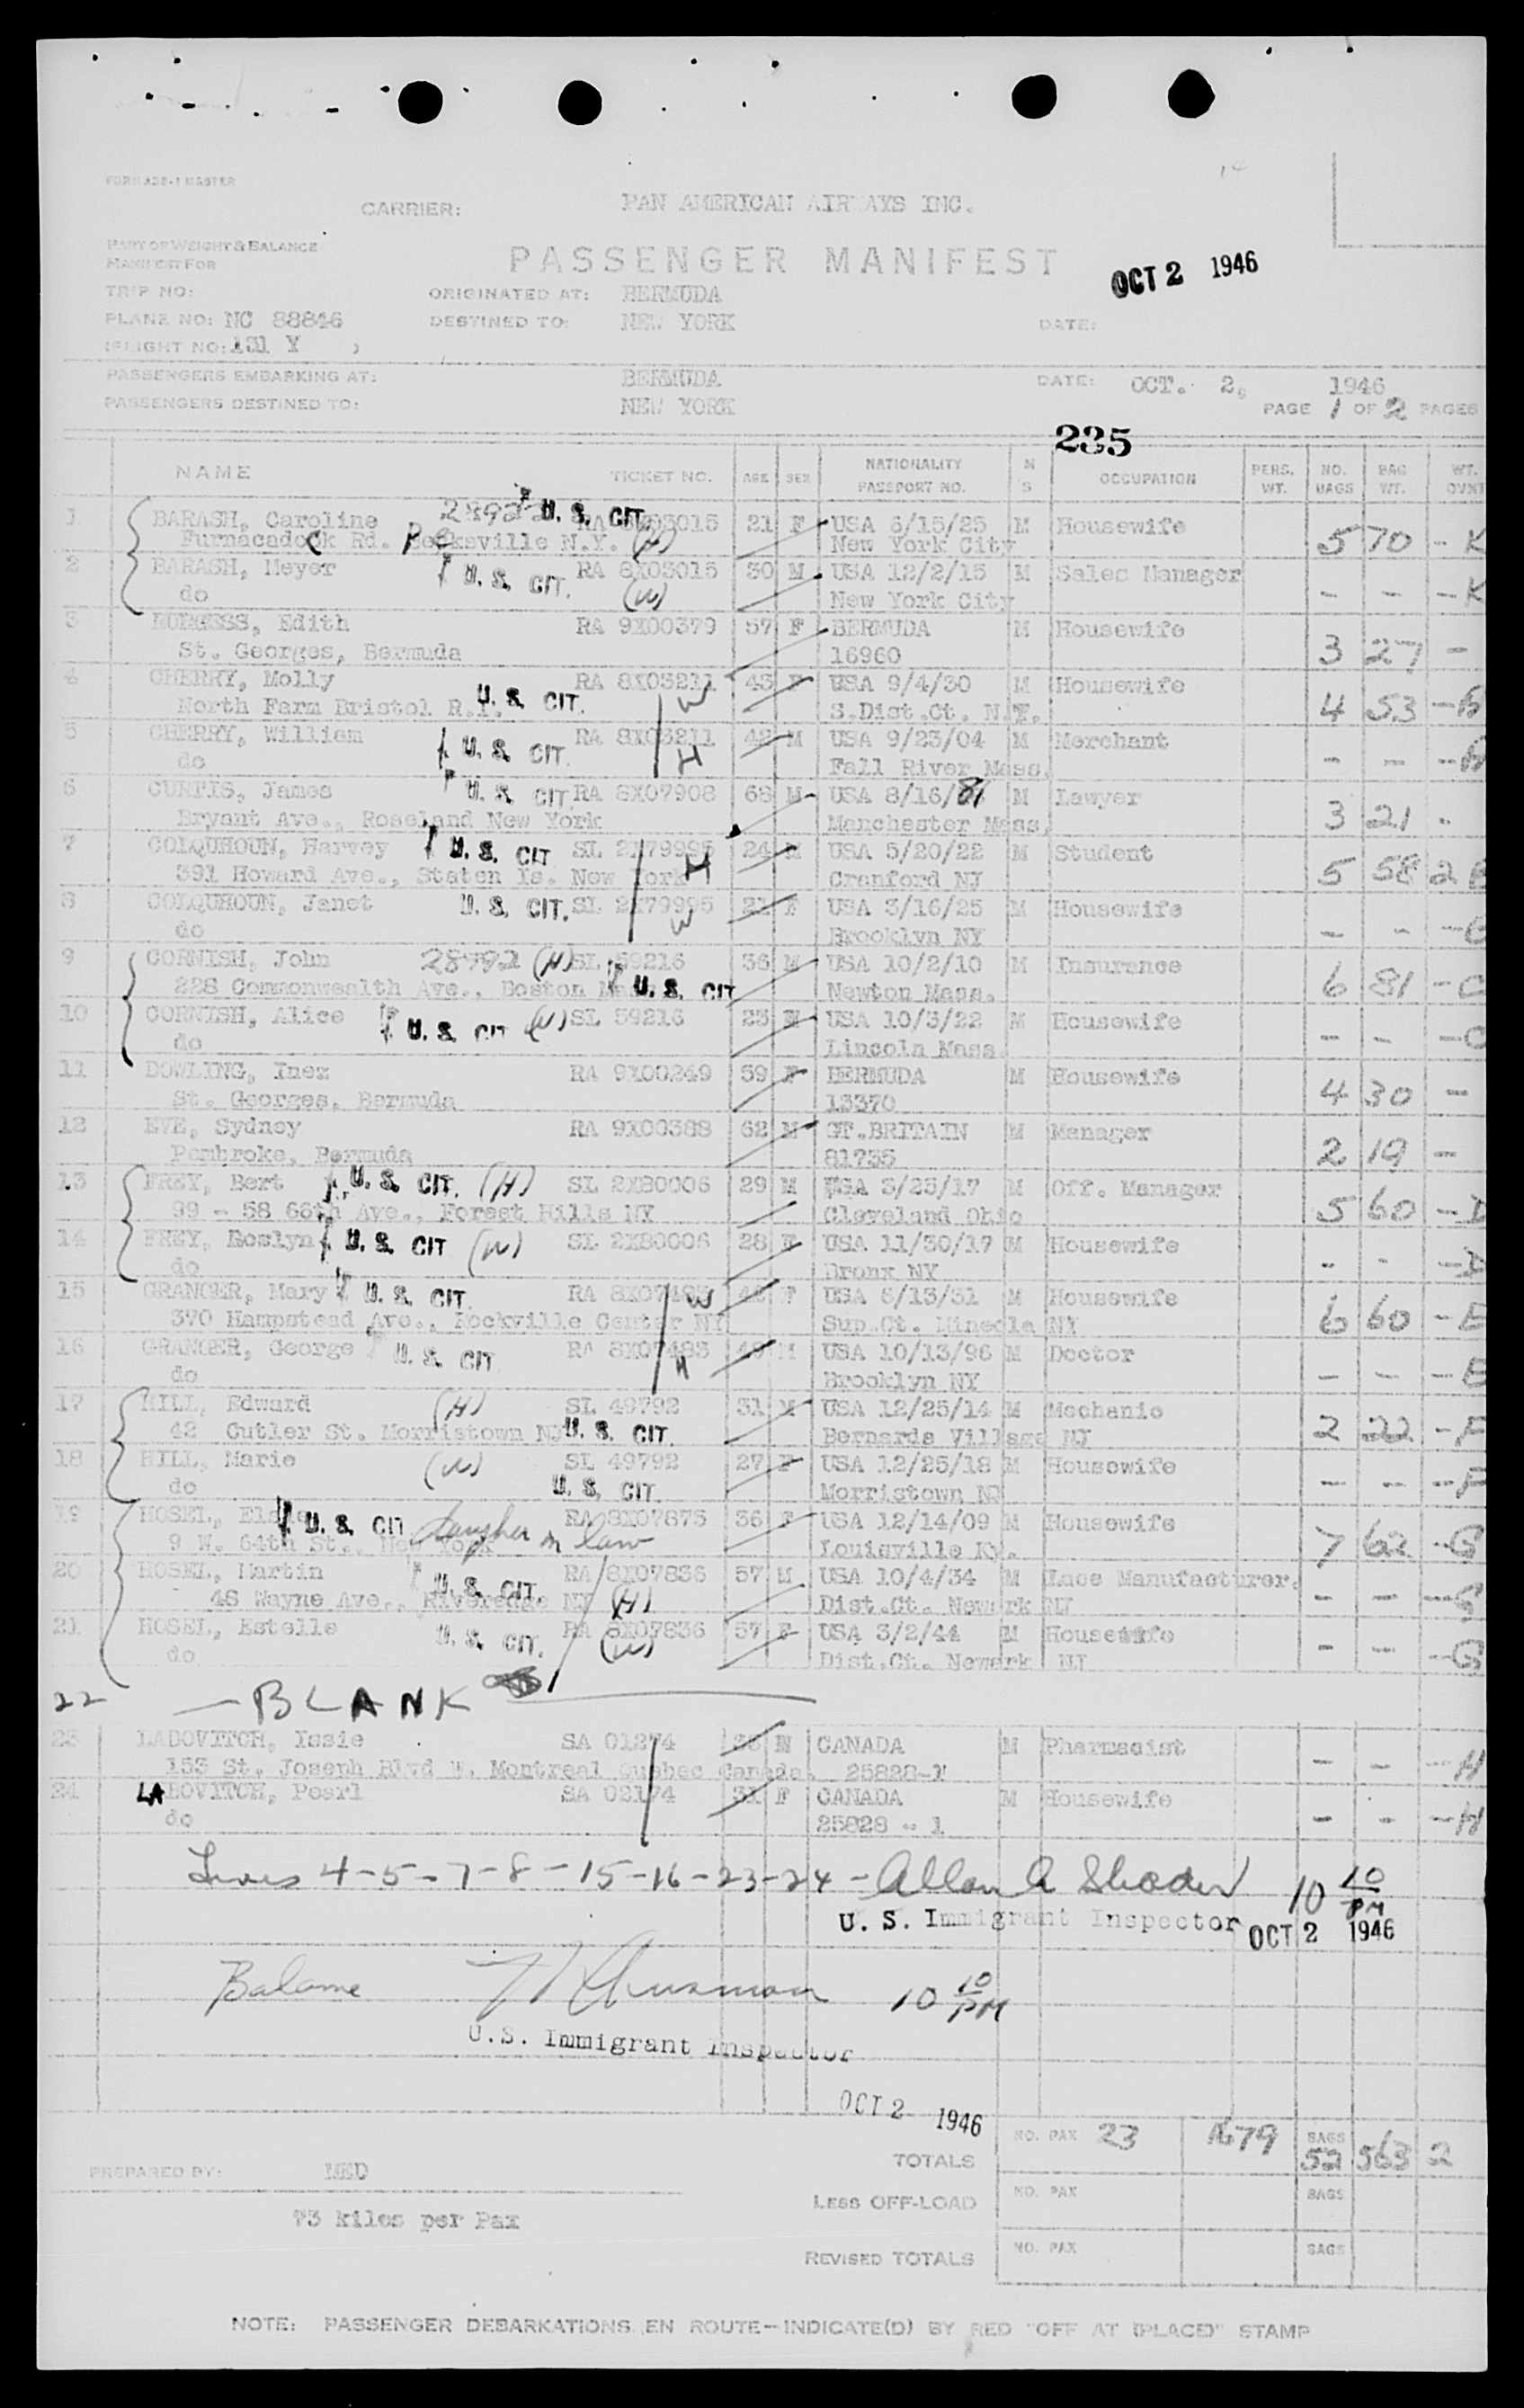 FORM ADS-1 MASTER
CARRIER: PAN AMERICAN AIRWAYS INC.
PART OF WEIGHT & BALANCE
MANIFEST FOR
PASSENGER MANIFEST
OCT 2 1946
TRIP NO: ORIGINATED AT: BERMUDA
PLANE NO: NC 88846 DESTINED TO: NEW YORK DATE:
(FLIGHT NO: 131 Y )
PASSENGERS EMBARKING AT: BERMUDA DATE: OCT. 2, 1946
PASSENGERS DESTINED TO: NEW YORK PAGE 1 OF 2 PAGES
235
NAME TICKET NO. AGE SEX NATIONALITY PASSPORT NO. M S OCCUPATION PERS. WT. NO. BAGS BAG WT. WT. OVNT
1 BARASH, Caroline U. S. CIT. 21 F USA 6/15/25 M Housewife
Rd. N.Y. (W) New York City 5 70 - K
2 BARASH, Meyer U. S. CIT. RA 8X03015 30 M USA 12/2/15 M Sales Manager
do (W) New York City - - - K
3 BURGESS, Edith RA 9X00379 57 F BERMUDA M Housewife
St. Georges, Bermuda 16960 3 27 -
4 CHERRY, Molly U. S. CIT. RA 8X03211 43 F USA 9/4/30 M Housewife
North Farm Bristol R.I. W S.Dist.Ct. N.Y. 4 53 -
5 CHERRY, William U. S. CIT. RA 8X03211 42 M USA 9/23/04 M Merchant
do H Fall River Mass. - - -
6 CURTIS, James U. S. CIT. RA 8X07908 68 M USA 8/16/81 M Lawyer
Bryant Ave., Roseland New York Manchester Mass. 3 21 -
7 COLQUHOUN, Harvey U. S. CIT SL 2X79995 24 M USA 5/20/22 M Student
391 Howard Ave., Staten Is. New York H Cranford NJ 5 58 2 B
8 COLQUHOUN, Janet U. S. CIT. SL 2X79995 21 F USA 3/16/25 M Housewife
do W Brooklyn NY - - -
9 CORNISH, John (H) SL 59216 36 M USA 10/2/10 M Insurance
228 Commonwealth Ave., Boston U. S. CIT Newton Mass. 6 81 - C
10 CORNISH, Alice U. S. CIT (W) SL 59216 23 USA 10/3/22 M Housewife
do Lincoln Mass - - - C
11 DOWLING, Inez RA 9X00249 59 F BERMUDA M Housewife
St. Georges, Bermuda 13370 4 30 -
12 EVE, Sydney RA 9X00388 62 M GT.BRITAIN M Manager
Pembroke, Bermuda 81735 2 19 -
13 FREY, Bert U. S. CIT. (H) SL 2X80006 29 M USA 3/23/17 M Off. Manager
99 - 58 66th Ave., Forest Hills NY Cleveland Ohio 5 60 - D
14 FREY, Roslyn U. S. CIT (W) SL 2X80006 28 F USA 11/30/17 M Housewife
do Bronx NY - - - D
15 GRANGER, Mary U. S. CIT. RA W F USA 6/13/31 M Housewife
370 Hampstead Ave., Rockville Center NY Sup.Ct. Mineola NY 6 60 - E
16 GRANGER, George U. S. CIT. RA 8X07483 M USA 10/13/96 M Doctor
do H Brooklyn NY - - - E
17 HILL, Edward (H) SL 49792 31 M USA 12/25/14 M Mechanic
42 Cutler St. Morristown NJ U. S. CIT. Bernards Village NJ 2 22 - F
18 HILL, Marie (W) SL 49792 27 F USA 12/25/18 M Housewife
do U. S. CIT. Morristown NJ - - - F
19 HOSEL, U. S. CIT RA 8X07875 36 F USA 12/14/09 M Housewife
9 W. 64th St., New York in law Louisville Ky. 7 62 - G
20 HOSEL, Martin U. S. CIT. RA 8X07836 57 M USA 10/4/34 M Lace Manufacturer.
46 Wayne Ave., NJ (H) Dist.Ct. Newark NJ - - - G
21 HOSEL, Estelle U. S. CIT. RA 8X07836 57 F USA 3/2/44 M Housewife
do (W) Dist.Ct. Newark NJ - - - G
22 — BLANK
23 LABOVITCH, Issie SA 01274 M CANADA M Pharmacist
153 St. Joseph Blvd W. Montreal Quebec Canada. 25828-F - - - H
24 LABOVITCH, Pearl SA 02174 31 F CANADA M Housewife
do 25828 - 1 - - - H
Lines 4-5-7-8-15-16-23-24 - Allan A 10 10 PM
U. S. Immigrant Inspector OCT 2 1946
Balance 10 10 PM
U.S. Immigrant Inspector
OCT 2 1946
TOTALS NO. PAX 23 1679 BAGS 52 563 2
PREPARED BY: MED
LESS OFF-LOAD NO. PAX BAGS
73 kilos per Pax
REVISED TOTALS NO. PAX BAGS
NOTE: PASSENGER DEBARKATIONS EN ROUTE—INDICATE(D) BY RED "OFF AT (PLACE)" STAMP